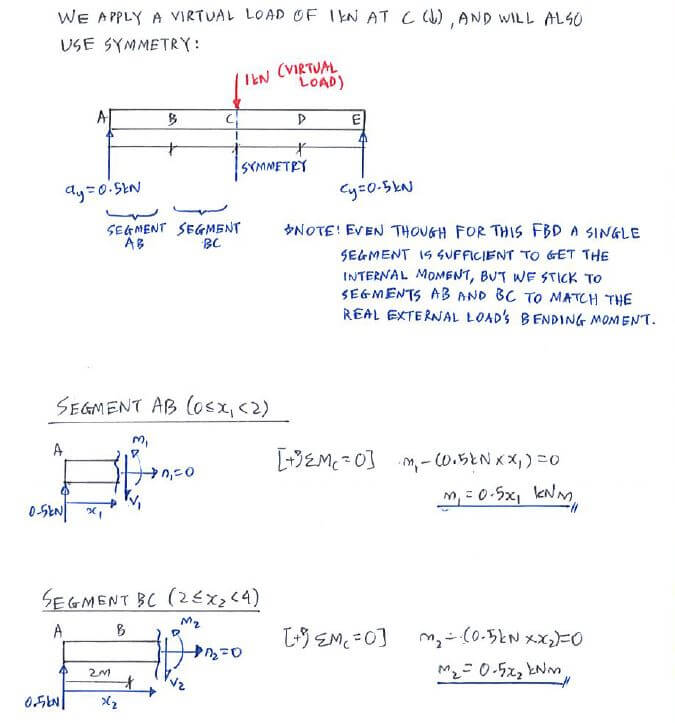 WE APPLY A VIRTUAL LOAD OF 1kN AT C (↓), AND WILL ALSO
USE SYMMETRY:
1kN (VIRTUAL
LOAD)
A B C D E
SYMMETRY
ay=0.5kN
Cy=0.5kN
SEGMENT
AB
SEGMENT
BC
*NOTE! EVEN THOUGH FOR THIS FBD A SINGLE
SEGMENT IS SUFFICIENT TO GET THE
INTERNAL MOMENT, BUT WE STICK TO
SEGMENTS AB AND BC TO MATCH THE
REAL EXTERNAL LOAD'S BENDING MOMENT.
SEGMENT AB (0≤x₁<2)
A
m₁
n₁=0
V₁
0.5kN
x₁
[+↺ΣMc=0] m₁-(0.5kN×x₁)=0
m₁=0.5x₁ kNm
SEGMENT BC (2≤x₂<4)
A B
m₂
n₂=0
V₂
2M
0.5kN
x₂
[+↺ΣMc=0] m₂-(0.5kN×x₂)=0
m₂=0.5x₂ kNm